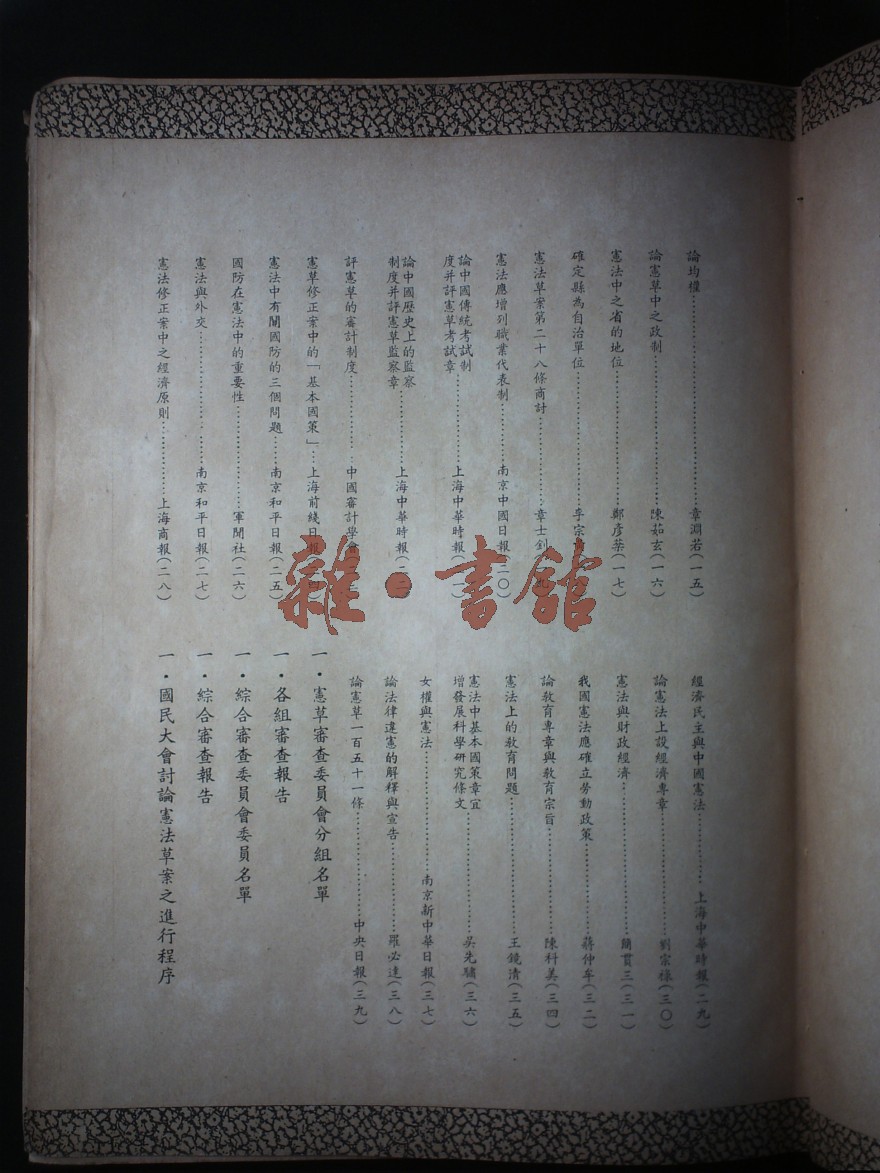 論均權……章淵若(一五)
論憲草中之政制……陳茹玄(一六)
憲法中之省的地位……鄭彥棻(一七)
確定縣為自治單位……李宗
憲法草案第二十八條商討……章士釗
憲法應增列職業代表制……南京中國日報(二〇)
論中國傳統考試制
度并評憲草考試章……上海中華時報
論中國歷史上的監察
制度并評憲草監察章……上海中華時報
評憲草的審計制度……中國審計學會
憲草修正案中的「基本國策」……上海前綫日報
憲法中有關國防的三個問題……南京和平日報(二五)
國防在憲法中的重要性……軍聞社(二六)
憲法與外交……南京和平日報(二七)
憲法修正案中之經濟原則……上海商報(二八)
經濟民主與中國憲法……上海中華時報(二九)
論憲法上設經濟專章……劉宗樑(三〇)
憲法與財政經濟……簡貫三(三一)
我國憲法應確立勞動政策……蔣仲牟(三二)
論教育專章與教育宗旨……陳科美(三四)
憲法上的教育問題……王鏡清(三五)
憲法中基本國策章宜
增發展科學研究條文……吳先驌(三六)
女權與憲法……南京新中華日報(三七)
論法律違憲的解釋與宣告……羅必達(三八)
論憲草一百五十一條……中央日報(三九)
一・憲草審查委員會分組名單
一・各組審查報告
一・綜合審查委員會委員名單
一・綜合審查報告
一・國民大會討論憲法草案之進行程序
雜・書館